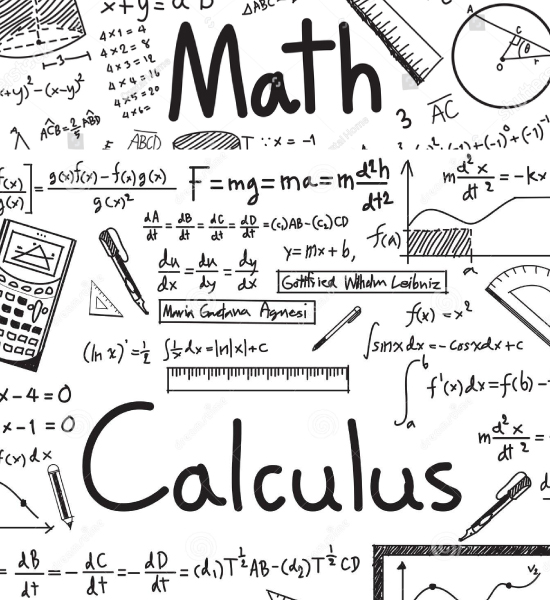 x+y=
ΔABC
4×1=4
4×2=8
4×3=12
4×4=16
4×5=20
4×6=
Math
A
C
B
θ
r
O
3
AC
+y)²-(x-y)²
AĈB=2/5 AB̂D
ABCD
T ∵x=-1
+(-1)⁰+(-1)
f(x)/g(x)] = g(x)f(x)-f(x)g(x)/g(x)²
F=mg=ma=m d²h/dt²
m d²x/dt²=-kx
dA/dt=dB/dt=dC/dt=dD/dt=(c₁)AB-(c₂)CD
f(a)
a
du/dx=du/dy=dy/dx
y=mx+b,
Gottfied Wilhelm Leibniz
Maria Gaetana Agnesi
f(x)=x²
(ln x)'=1/2 ∫1/x dx=ln|x|+c
∫sinxdx=-cosxdx+c
∫ₐᵇ f'(x)dx=f(b)-
x-4=0
x-1=0
f(x)dx
Calculus
m d²x/dt²=
=dB/dt=-dC/dt=-dD/dt=(d₁)T^½AB-(d₂)T^½CD
V₂